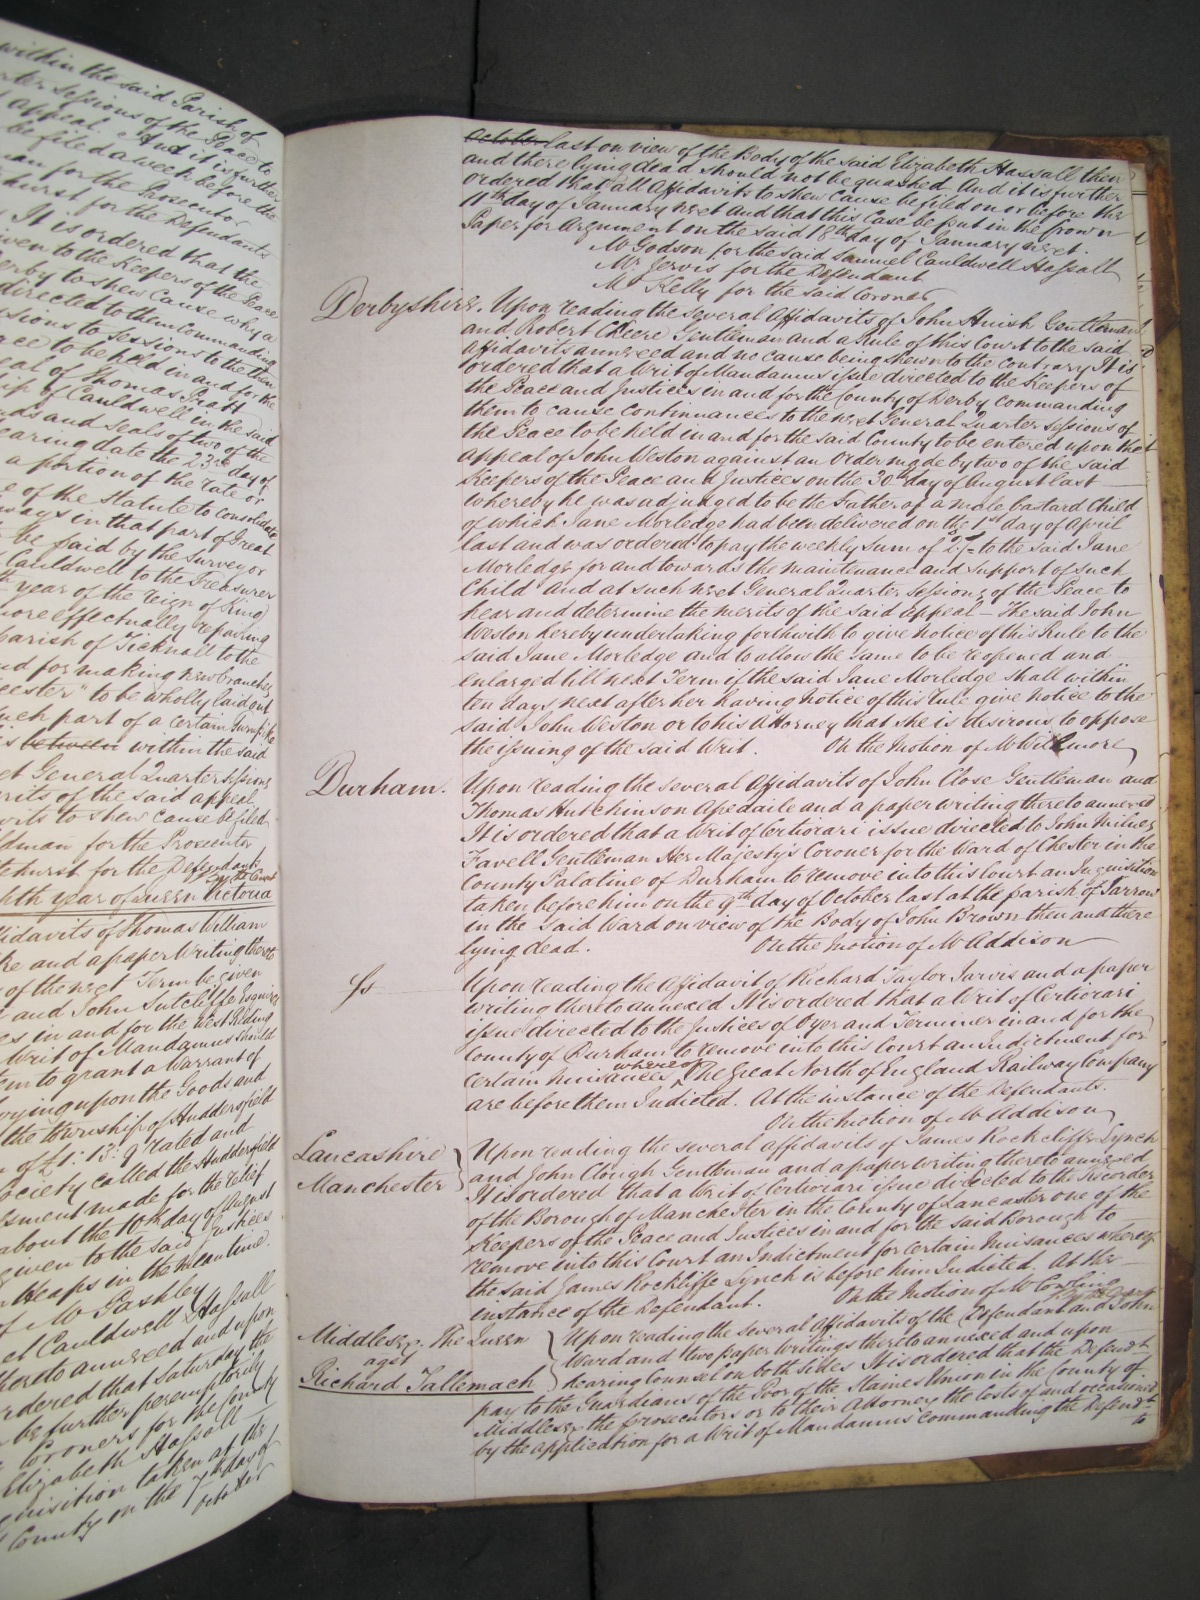 within the said Parish of
Sessions of the Peace to
appeal. And it is further
be filed a week before the
for the Prosecutor
hurst for the Defendants
It is ordered that the
given to the Keepers of the Peace
Derby to shew cause why a
directed to them Commanding
Sessions to Sessions to the then
to be held in and for the
of Thomas Pratt
of Cauldwell in the said
and Seals of two of the
bearing date the 23rd day of
a portion of the rate or
of the Statute to consolidate
ways in that part of Great
be paid by the Surveyor
Cauldwell to the Treasurer
year of the reign of King
more effectually repairing
Parish of Ticknall to the
and for making new branches
" to be wholly laid out
such part of a certain Turnpike
is between within the said
General Quarter Sessions
merits of the said appeal
to shew cause be filed
for the Prosecutor
hurst for the Defendants
By the Court
year of Queen Victoria
affidavits of Thomas William
and a paper Writing thereto
of the next Term be given
and John Sutcliffe Esquires
in and for the West Riding
Writ of Mandamus should
them to grant a Warrant of
levying upon the Goods and
the township of Huddersfield
of £1: 13: 9 rated and
Society called the Huddersfield
made for the relief
about the 10th day of August
given to the said Justices
Heaps in the mean time.
of Mr Pashley
Cauldwell Hassall
thereto annexed and upon
ordered that Saturday the
be further peremptorily
Coroners for the County
Elizabeth Hassall
taken at the
County on the 7th day of
October
October last on view of the Body of the said Elizabeth Hassall then
and there lying dead should not be quashed And it is further
ordered that all Affidavits to shew cause be filed on or before the
11th day of January next and that this Case be put in the Crown
Paper for Argument on the said 18th day of January next.
Mr Godson for the said Samuel Cauldwell Hassall
Mr Jervis for the Defendant
Mr Kelly for the said Coroner
Derbyshire. Upon reading the several Affidavits of John Huish Gentleman
and Robert Cheere Gentleman and a Rule of this Court to the said
Affidavits annexed and no cause being shewn to the contrary It is
ordered that a Writ of Mandamus issue directed to the Keepers of
the Peace and Justices in and for the County of Derby commanding
them to cause continuances to the next General Quarter Sessions of
the Peace to be held in and for the said County to be entered upon the
appeal of John Weston against an Order made by two of the said
Keepers of the Peace and Justices on the 30th day of August last
whereby he was adjudged to be the Father of a male bastard Child
of which Jane Morledge had been delivered on the 1st day of April
last and was ordered to pay the weekly sum of 2/- to the said Jane
Morledge for and towards the maintenance and support of such
Child and at such next General Quarter Sessions of the Peace to
hear and determine the merits of the said appeal – The said John
Weston hereby undertaking forthwith to give notice of this Rule to the
said Jane Morledge and to allow the same to be reopened and
enlarged till next Term if the said Jane Morledge shall within
ten days next after her having notice of this rule give notice to the
said John Weston or to his Attorney that she is desirous to oppose
the issuing of the said Writ. On the Motion of Mr Willmore
Durham. Upon reading the several Affidavits of John Close Gentleman and
Thomas Hutchinson Apedaile and a paper writing thereto annexed
It is ordered that a Writ of Certiorari issue directed to John Milnes
Favell Gentleman Her Majesty's Coroner for the Ward of Chester in the
County Palatine of Durham to remove into this Court an Inquisition
taken before him on the 9th day of October last at the parish of Jarrow
in the said Ward on view of the Body of John Brown then and there
lying dead. On the Motion of Mr Addison
Ss Upon reading the Affidavit of Richard Taylor Jarvis and a paper
writing thereto annexed It is ordered that a Writ of Certiorari
issue directed to the Justices of Oyer and Terminer in and for the
County of Durham to remove into this Court an Indictment for
certain Nuisances whereof The Great North of England Railway Company
are before them Indicted. At the instance of the Defendants.
On the Motion of Mr Addison
Lancashire Upon reading the several affidavits of James Rockliffe Lynch
Manchester and John Clough Gentleman and a paper writing thereto annexed
It is ordered that a Writ of Certiorari issue directed to the Recorder
of the Borough of Manchester in the County of Lancaster one of the
Keepers of the Peace and Justices in and for the said Borough to
remove into this Court an Indictment for certain Nuisances whereof
the said James Rockliffe Lynch is before him Indicted. At the
instance of the Defendant. On the Motion of Mr Cowling
By the Court
Middlesex. The Queen Upon reading the several Affidavits of the Defendant and John
agst Ward and two paper writings thereto annexed and upon
Richard Tallemach hearing Counsel on both sides It is ordered that the Defendt
pay to the Guardians of the Poor of the Staines Union in the County of
Middlesex the prosecutors or to their Attorney the Costs of and occasioned
by the application for a Writ of Mandamus commanding the Defendt
to